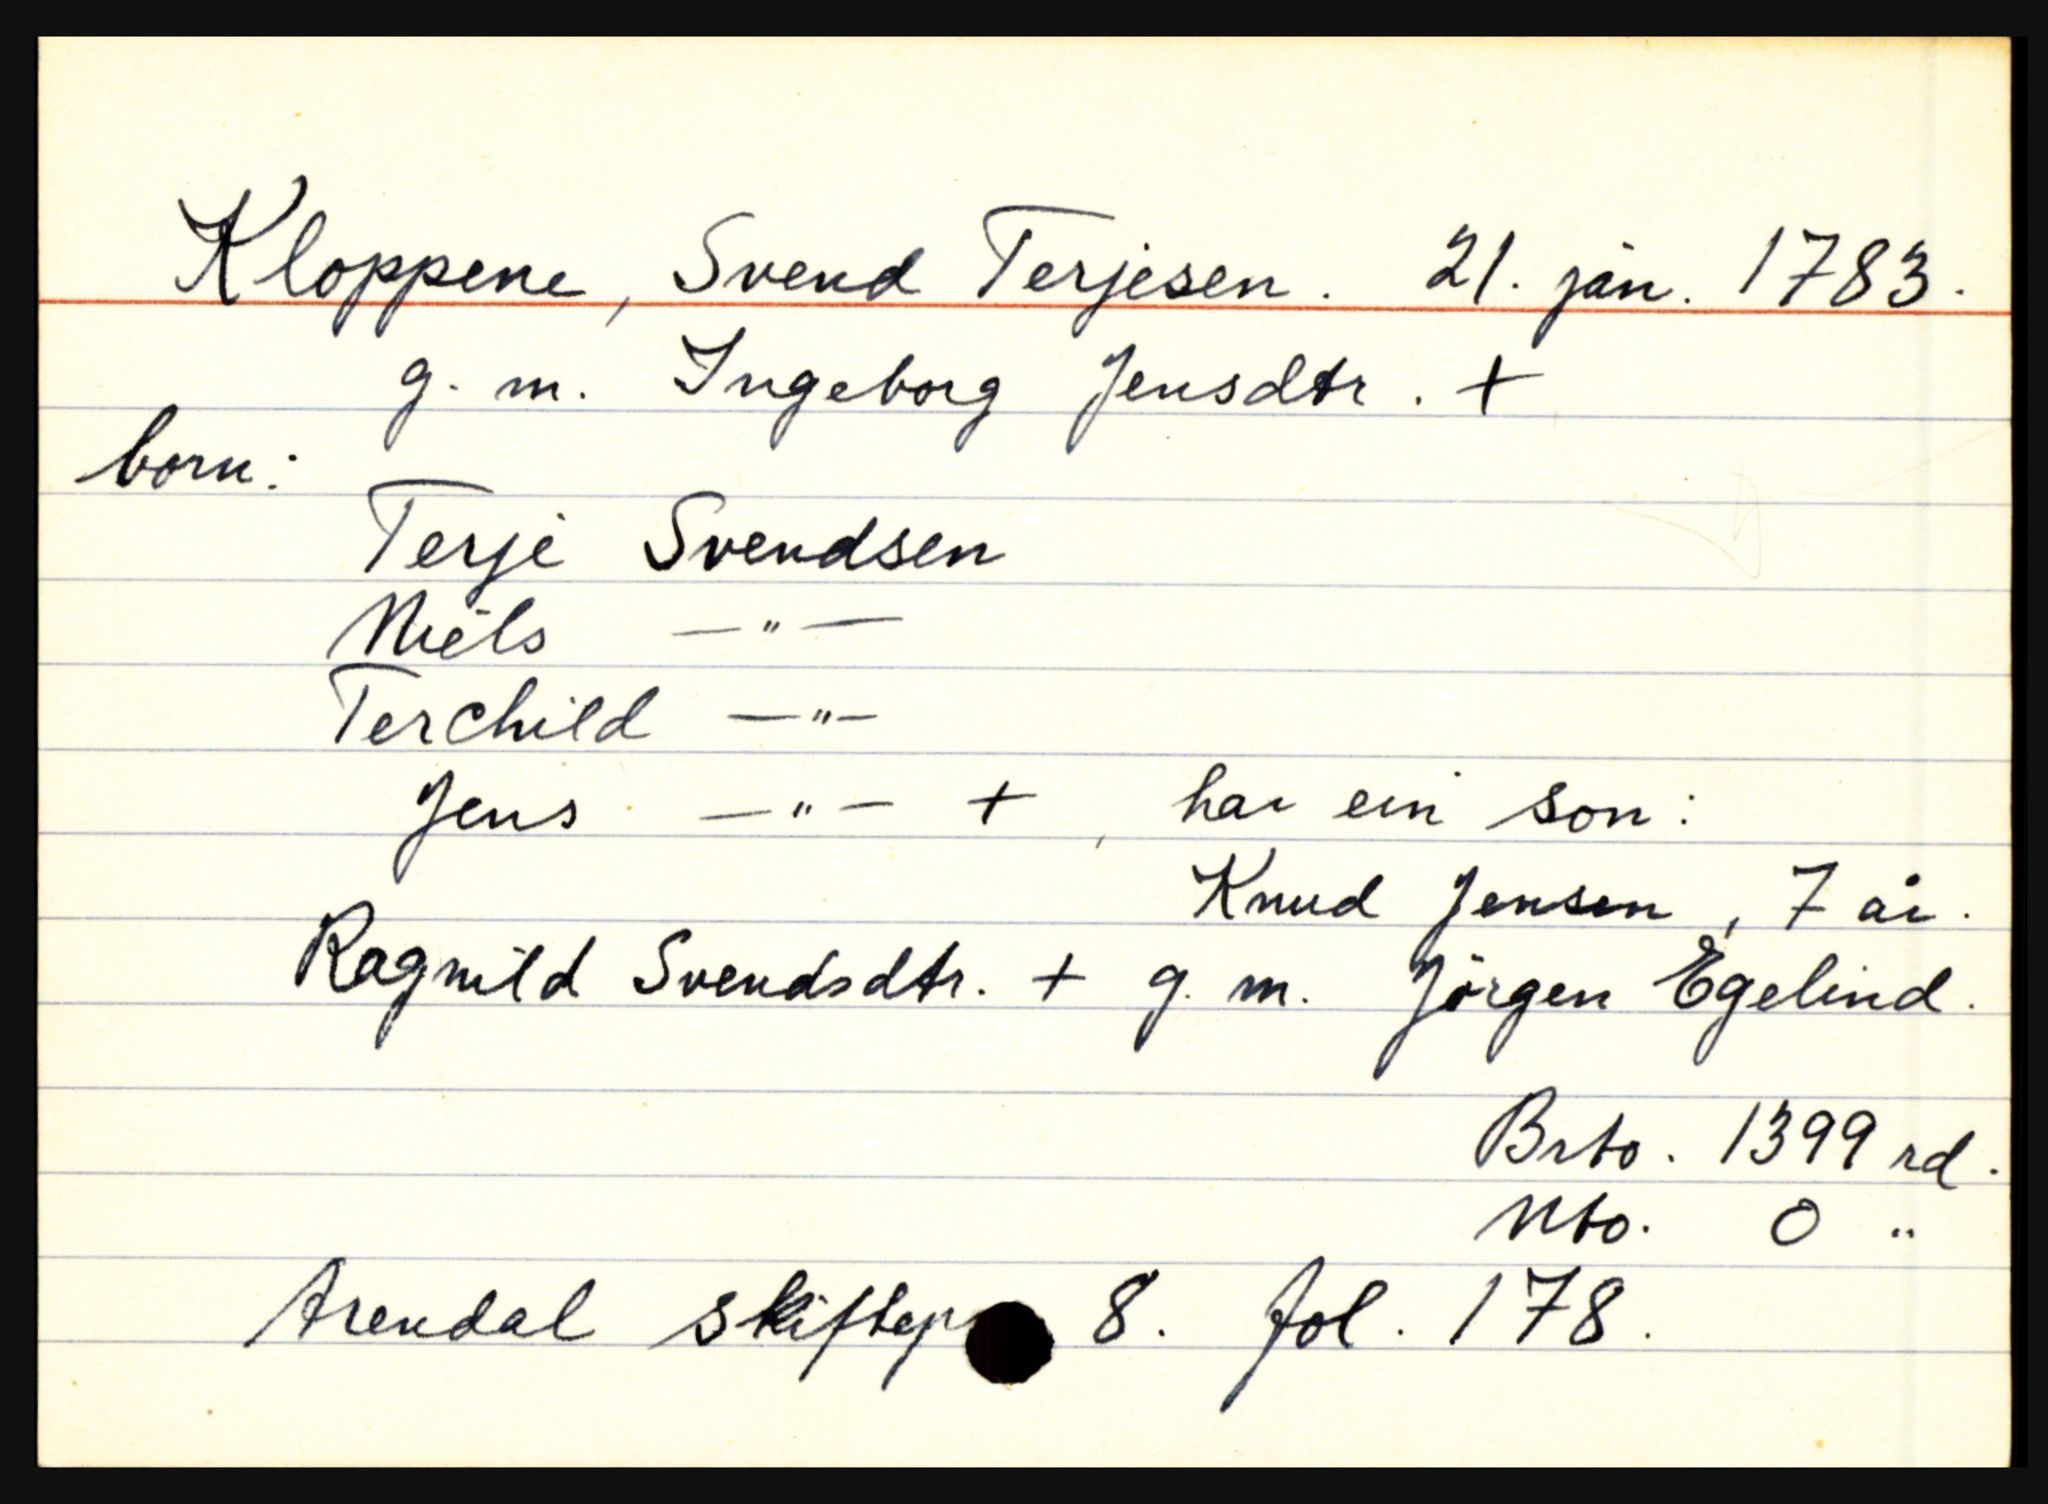 Kloppene, Svend Terjesen. 21. jan. 1783.
g. m. Ingeborg Jensdtr. +
born:
Terje Svendsen
Niels —"—
Terchild —"—
Jens —"— +, har ein son:
Knud Jensen, 7 år.
Ragnild Svendsdtr. + g. m. Jörgen Egelind.
Brto. 1399 rd.
Nto. 0 "
Arendal skiftepr 8. fol. 178.